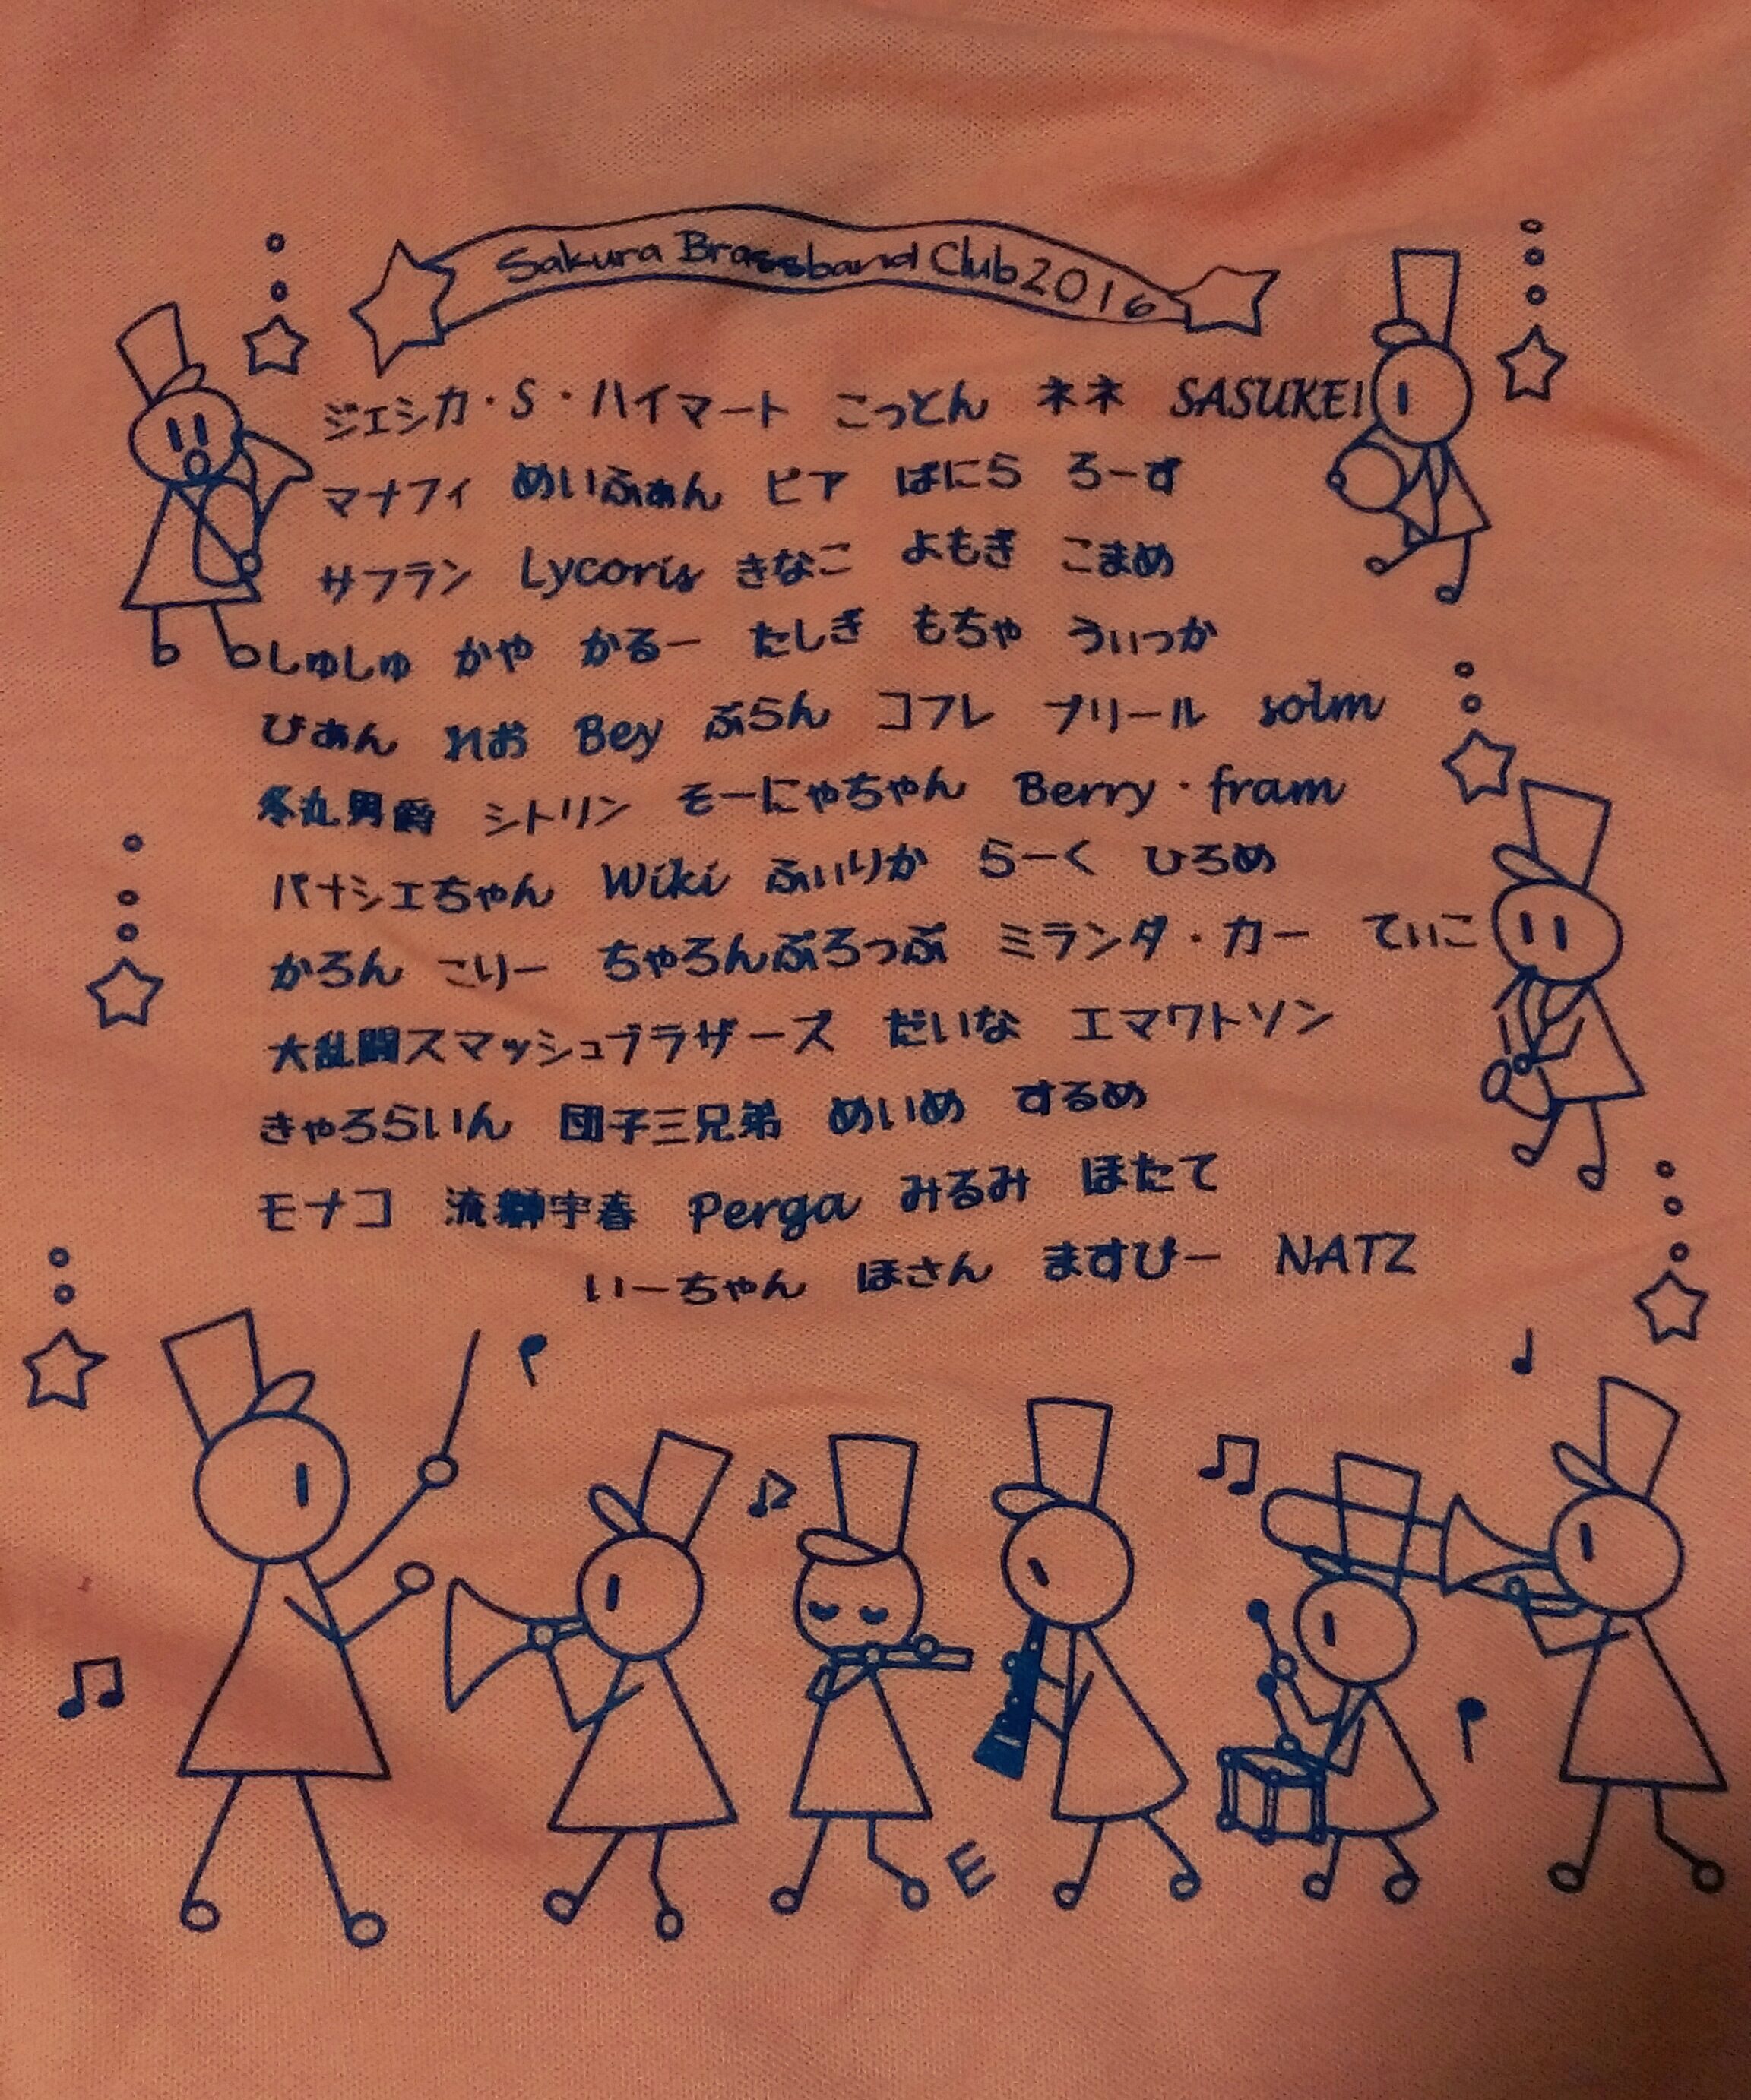 Sakura Brassband Club 2016
ジェシカ・S・ハイマート こっとん ネネ SASUKE!
マナフィ めいふぁん ピア ばにら ろーず
サフラン Lycoris きなこ よもぎ こまめ
しゅしゅ かや かるー たしぎ もちゃ うぃっか
びあん れお Bey ぶらん コフレ ブリール solm
冬丸男爵 シトリン そーにゃちゃん Berry・fram
パナシェちゃん Wiki ふぃりか らーく ひろめ
かろん こりー ちゃろんぷろっぷ ミランダ・カー てぃこ
大乱闘スマッシュブラザーズ だいな エマワトソン
きゃろらいん 団子三兄弟 めいめ するめ
モナコ Perga みるみ ほたて
いーちゃん ほさん ますぴー NATZ
E